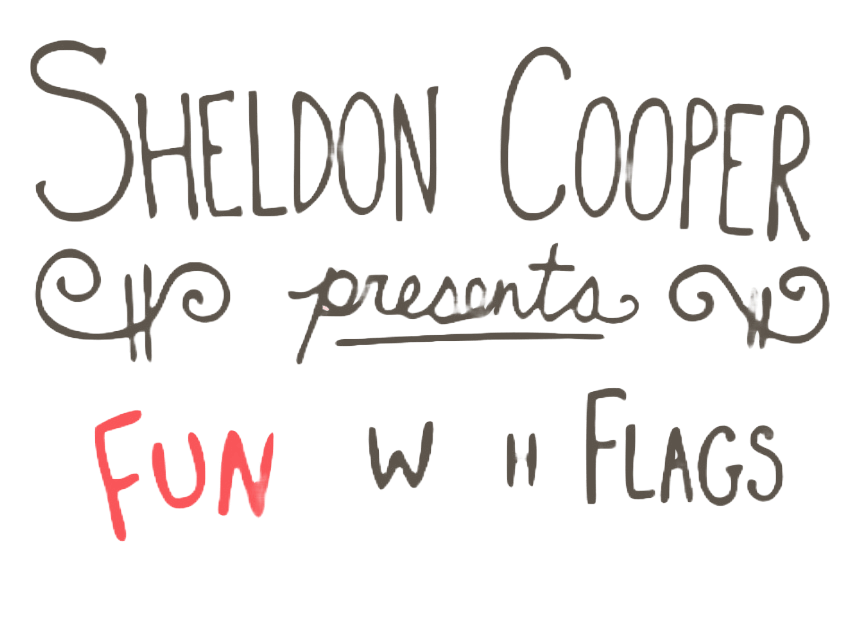 SHELDON COOPER
presents
FUN W FLAGS